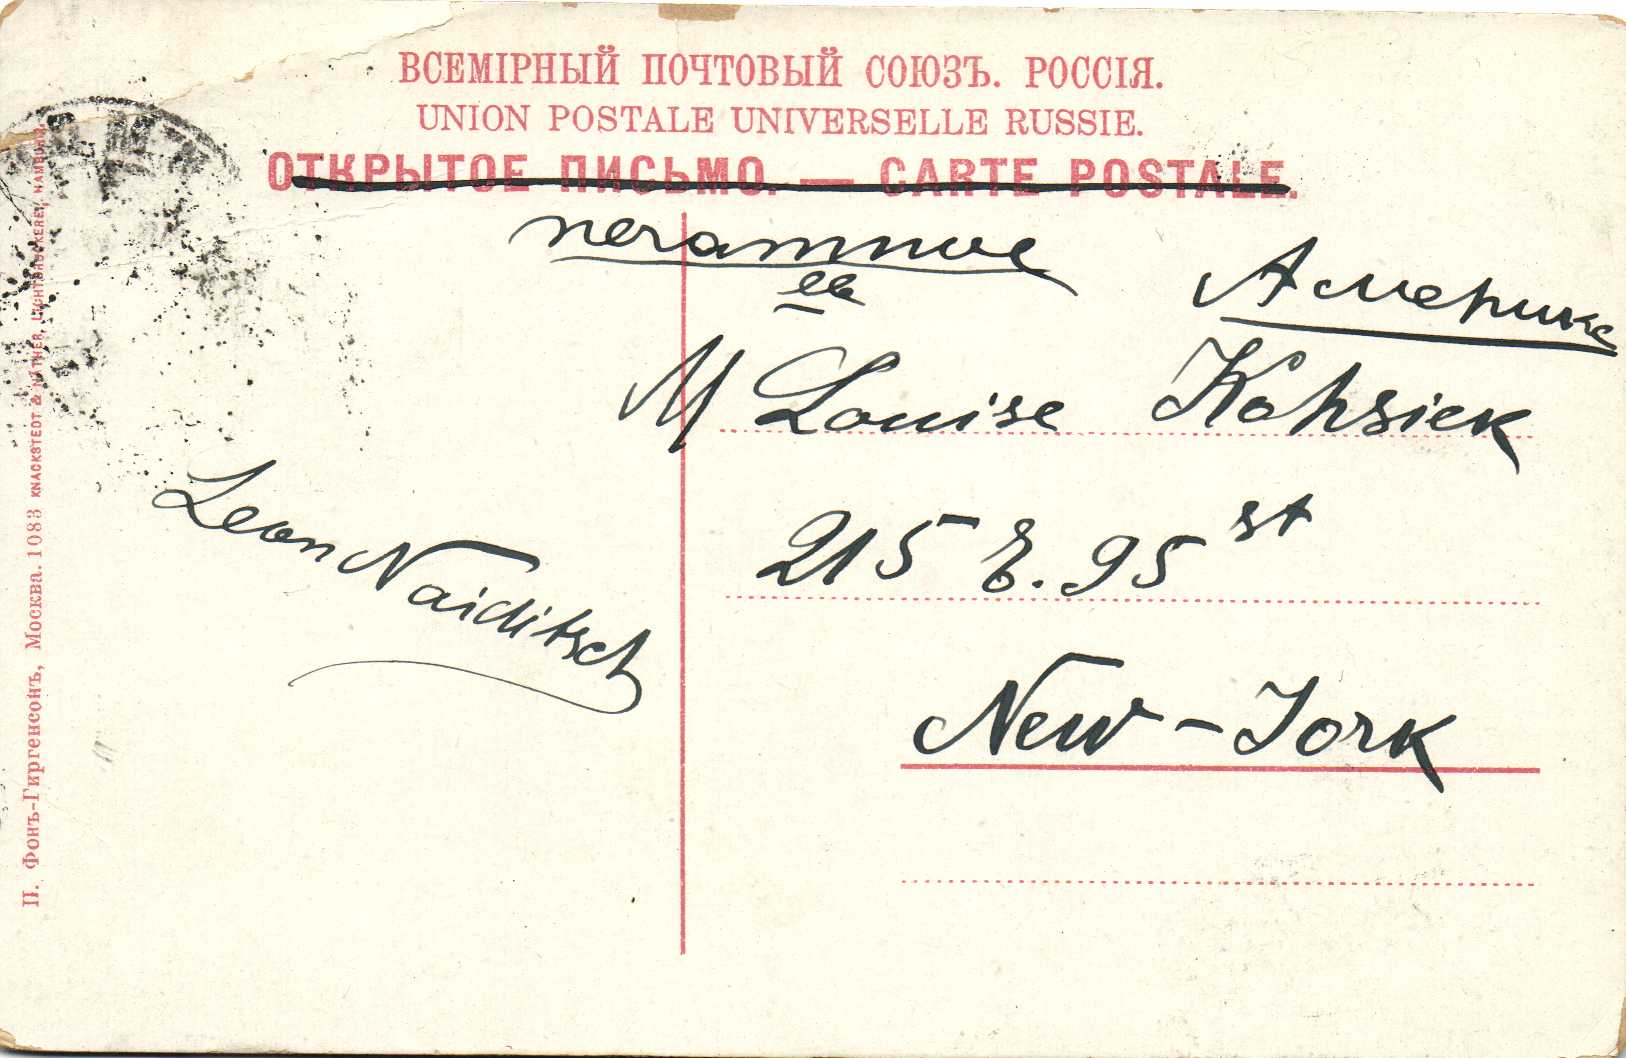 ВСЕМІРНЫЙ ПОЧТОВЫЙ СОЮЗЪ. РОССІЯ.
UNION POSTALE UNIVERSELLE RUSSIE.
ОТКРЫТОЕ ПИСЬМО. — CARTE POSTALE.
печатное
въ
Америку
M Louise Kohsiek
215 E. 95 st
New-York
Leon Naiditsch
П. Фонъ-Гиргенсонъ, Москва. 1083 KNACKSTEDT & NÄTHER, LICHTDRUCKEREI, HAMBURG.